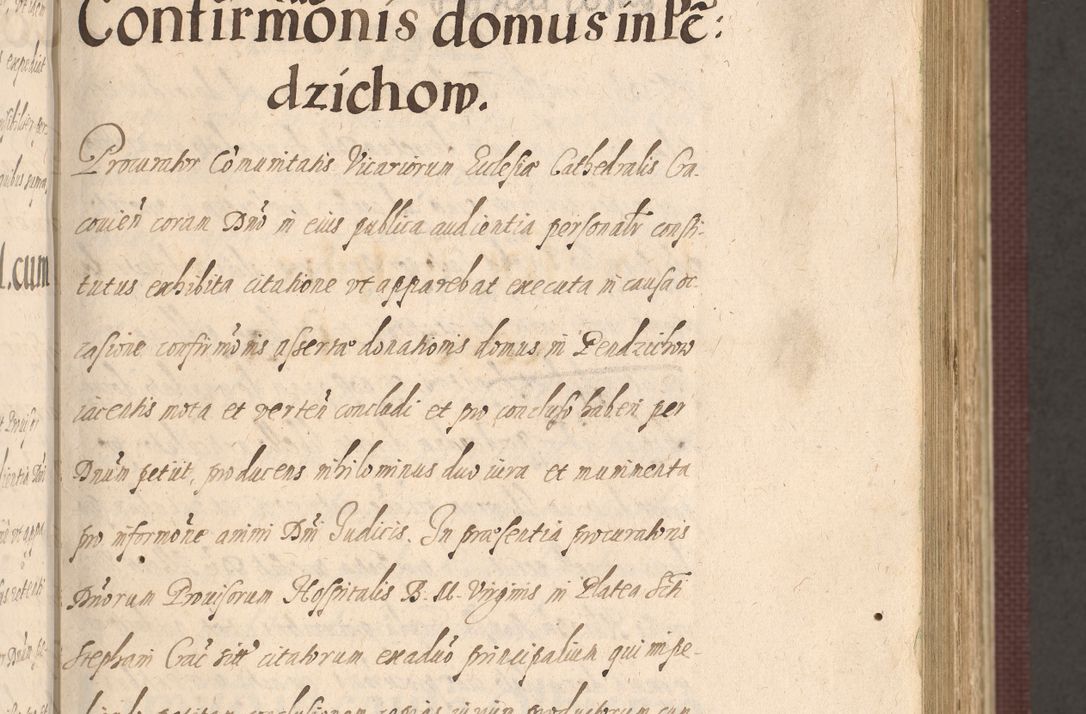 Confirmõnis domus in Pẽ:
dzichow.
Procurator Cõmunitatis Vicariorum Ecclesiæ Cathedralis Cra
couieñ coram Dnõ in eius publica audientia personalr consti-
tutus exhibita citatione vt apparebat executa in causa oc
casione confirmõnis assertæ donationis domus in Pendzichow
iacentis mota et verteñ concludi et pro concluso haberi per
Dnũm petiit, producens nihilominus duo iura et munimenta
pro informõne animi Dñi Judicis. In præsentia procuratoris
Dnõrum Prouisorum Hospitalis B. M. Virginis in Platea Scti
Stephani Crac̃ citatorum principalium qui impe-